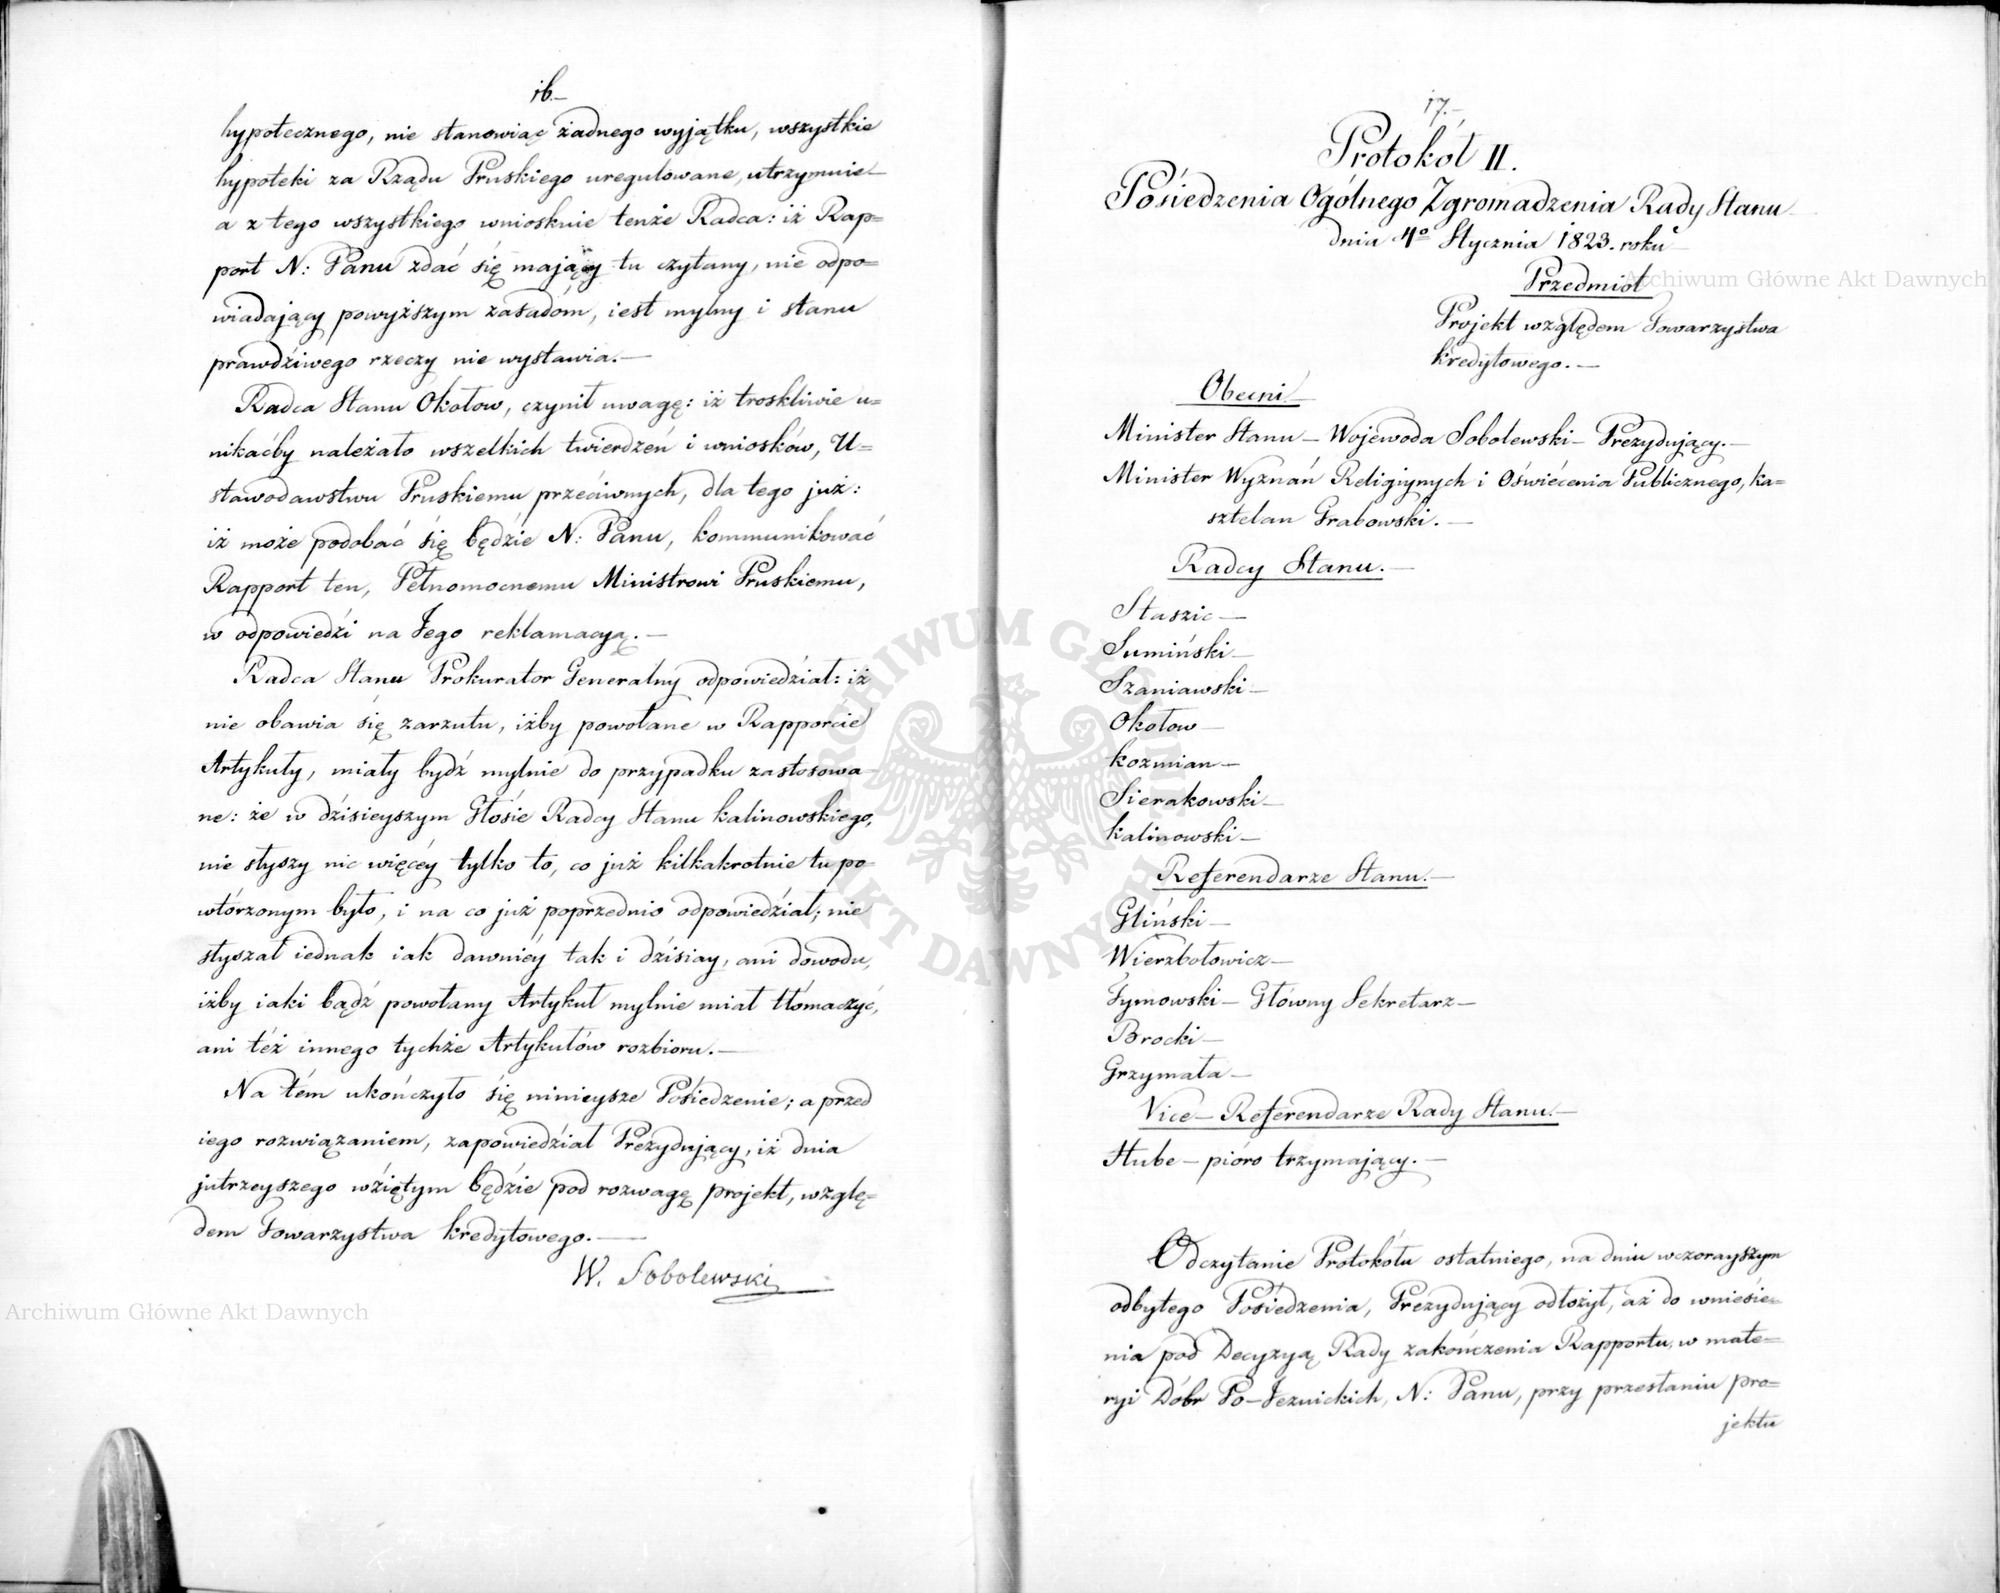 16.
hypotecznego, nie stanowiąc żadnego wyjątku, wszystkie
hypoteki za Rządu Pruskiego uregulowane, utrzymuie
a z tego wszystkiego wnioskuie tenże Radca: iż Rap=
port N: Panu zdać się mający tu czytany, nie odpo=
wiadający powyższym zasadóm, iest mylny i stanu
prawdźiwego rzeczy nie wystawia.—
Radca Stanu Okołow, czynił uwagę: iż troskliwie u=
nikaćby należało wszelkich twierdzeń i wniosków, U=
stawodawstwu Pruskiemu przećiwnych, dla tego już:
iż może podobać śię będzie N: Panu, kommunikować
Rapport ten, Pełnomocnemu Ministrowi Pruskiemu,
w odpowiedźi na Jego reklamacyą.—
Radca Stanu Prokurator Generalny odpowiedźiał: iż
nie obawia śię zarzutu, iżby powołane w Rapporcie
Artykuły, miały bydź mylnie do przypadku zastosowa-
ne: że w dźisieyszym Głośie Radcy Stanu Kalinowskiego,
nie słyszy nic więcéy tylko to, co już kilkakrotnie tu po-
wtórzonym było, i na co już poprzednio odpowiedźiał; nie
słyszał iednak iak dawniéy tak i dźisiay, ani dowodu,
iżby iaki bądź powołany Artykuł mylnie miał tłómaczyć,
ani téż innego tychże Artykułów rozbioru.—
Na tém ukończyło śię ninieysze Pośiedzenie; a przed
iego rozwiązaniem, zapowiedźiał Prezyduiący, iż dnia
jutrzeyszego wźiętym będźie pod rozwagę projekt, wzglę=
dem Towarzystwa kredytowego.—
W. Sobolewski
17.—
Protokół II.
Pośiedzenia Ogólnego Zgromadzenia Rady Stanu
dnia 4º Stycznia 1823. roku
Przedmiot
Projekt względem Towarzystwa
kredytowego.—
Obecni
Minister Stanu — Wojewoda Sobolewski — Prezydujący.—
Minister Wyznań Religiynych i Oświécenia Publicznego, Ka=
sztelan Grabowski.—
Radcy Stanu.—
Staszic—
Sumiński—
Szaniawski—
Okołow—
Kozmian—
Sierakowski—
Kalinowski—
Referendarze Stanu.—
Gliński—
Wierzbołowicz—
Tymowski — Główny Sekretarz—
Brocki—
Grzymała—
Vice — Referendarze Rady Stanu.—
Hube — pióro trzymający.—
Odczytanie Protokółu ostatniego, na dniu wczorayszym
odbytego Pośiedzenia, Prezydujący odłożył, aż do wnieśie=
nia pod Decyzyą Rady zakończenia Rapportu, w mate=
ryi Dóbr Po-Jezuickich, N: Panu, przy przesłaniu pro=
jektu
Archiwum Główne Akt Dawnych
Archiwum Główne Akt Dawnych
ARCHIWUM GŁÓWNE AKT DAWNYCH